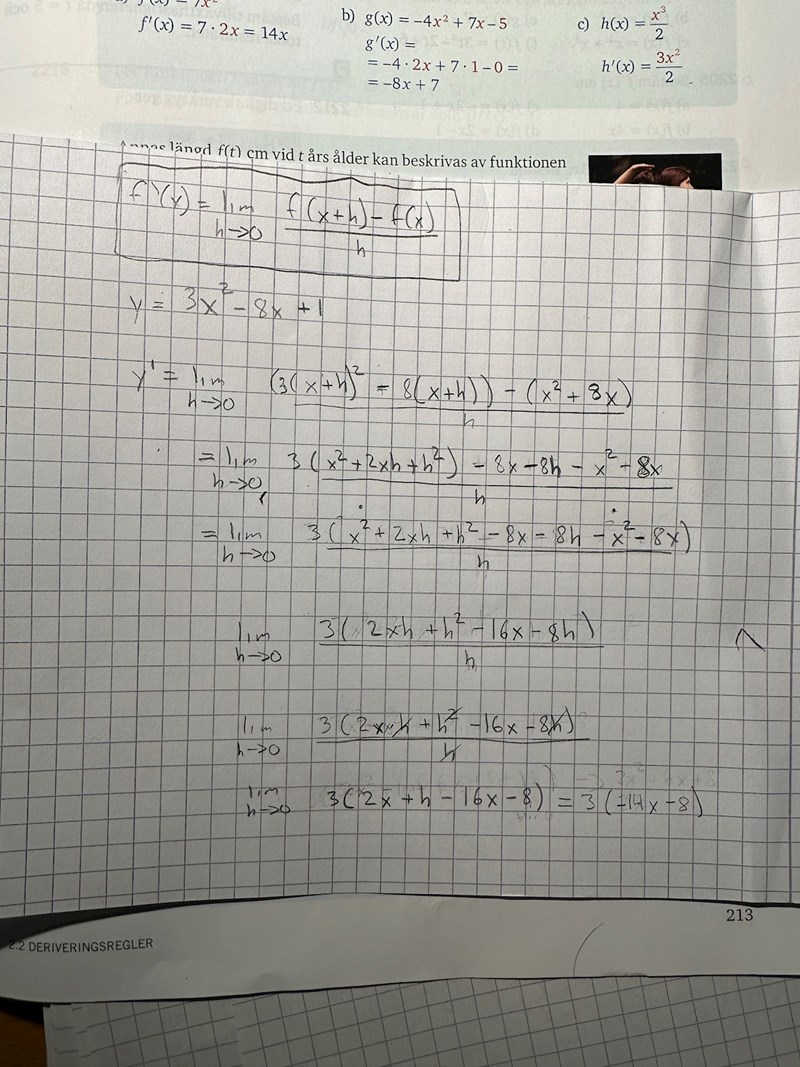 f'(x) = 7 · 2x = 14x
b) g(x) = −4x² + 7x − 5
g'(x) =
= −4 · 2x + 7 · 1 − 0 =
= −8x + 7
c) h(x) = x³/2
h'(x) = 3x²/2
längd f(t) cm vid t års ålder kan beskrivas av funktionen
f'(x) = lim h→0 (f(x+h) − f(x))/h
y = 3x² − 8x + 1
y' = lim h→0 ((3(x+h)² − 8(x+h)) − (x² + 8x))/h
= lim h→0 (3(x² + 2xh + h²) − 8x − 8h − x² − 8x)/h
= lim h→0 3(x² + 2xh + h² − 8x − 8h − x² − 8x)/h
lim h→0 3(2xh + h² − 16x − 8h)/h
lim h→0 3(2x·h + h² − 16x − 8h)/h
lim h→0 3(2x + h − 16x − 8) = 3(−14x − 8)
213
2.2 DERIVERINGSREGLER